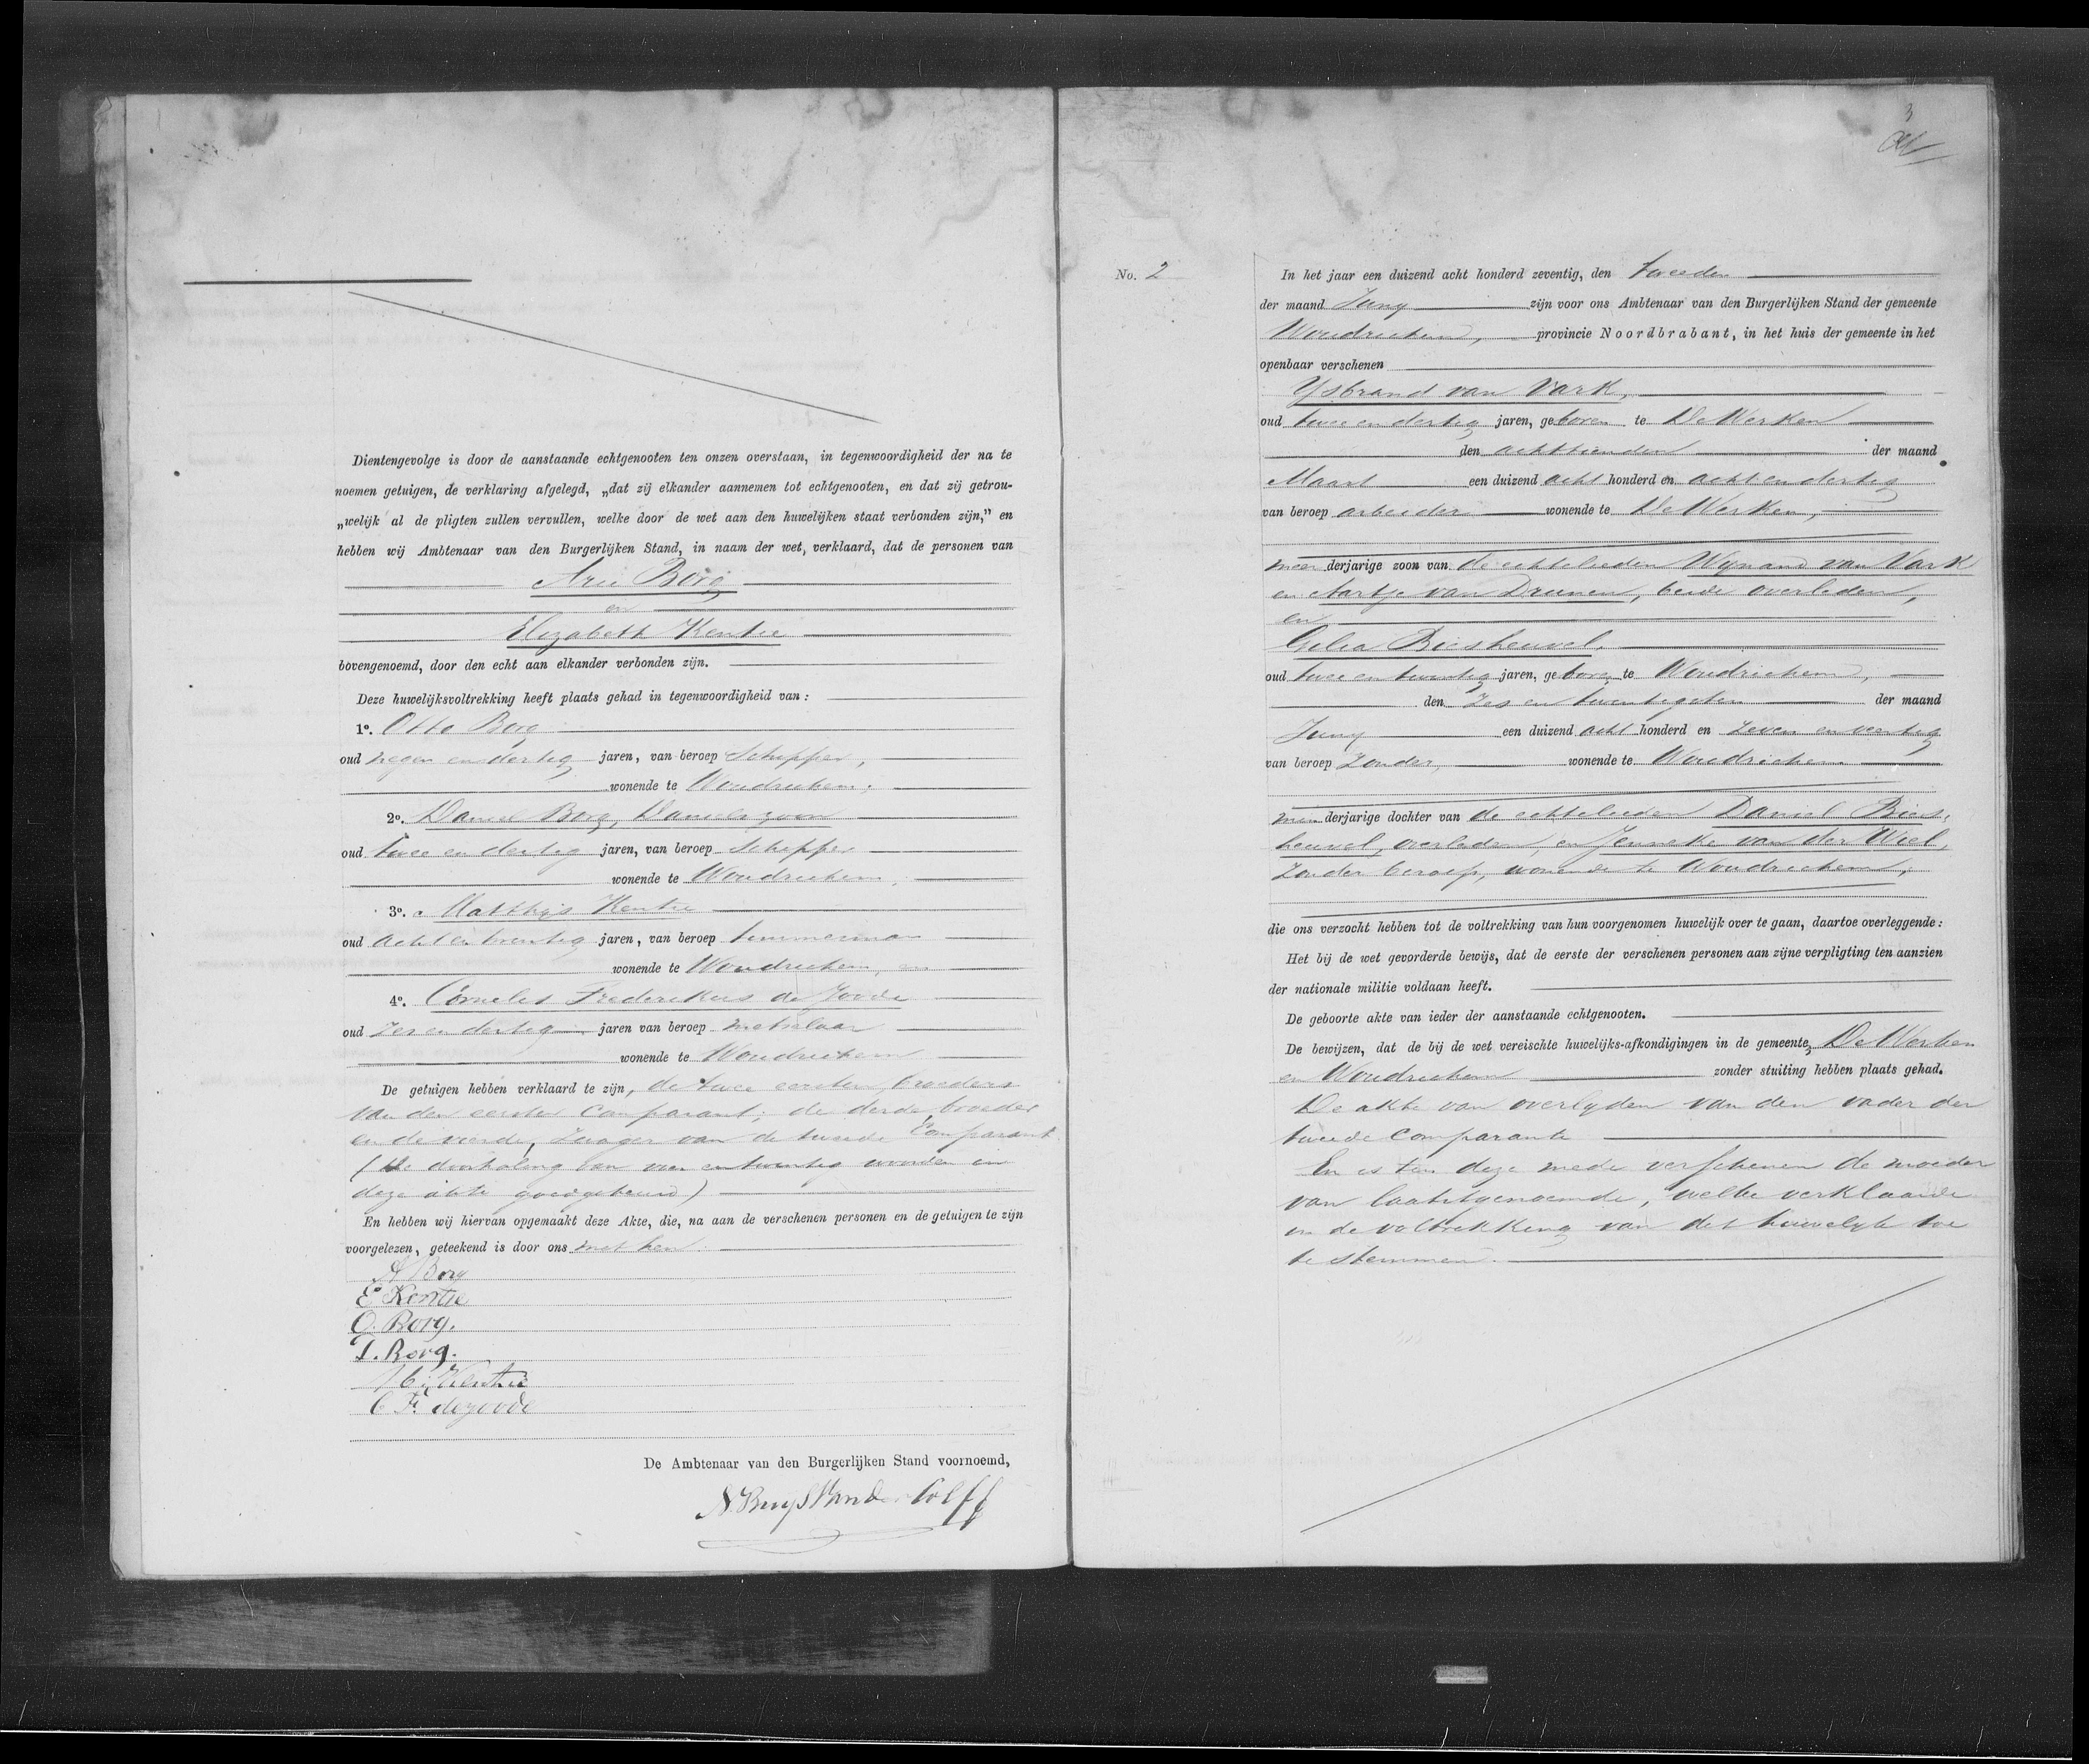 Dientengevolge is door de aanstaande echtgenooten ten onzen overstaan, in tegenwoordigheid der na te
noemen getuigen, de verklaring afgelegd, „dat zij elkander aannemen tot echtgenooten, en dat zij getrou-
„welijk al de pligten zullen vervullen, welke door de wet aan den huwelijken staat verbonden zijn,” en
hebben wij Ambtenaar van den Burgerlijken Stand, in naam der wet, verklaard, dat de personen van
Arie Borg
en
Elizabeth Kentie
bovengenoemd, door den echt aan elkander verbonden zijn.
Deze huwelijksvoltrekking heeft plaats gehad in tegenwoordigheid van:
1o. Otto Borg
oud negen en dertig jaren, van beroep Schipper,
wonende te Woudrichem,
2o. Daniel Borg, Danielszoon
oud twee en dertig jaren, van beroep Schipper
wonende te Woudrichem,
3o. Matthijs Kentie
oud acht en twintig jaren, van beroep timmerman
wonende te Woudrichem, en
4o. Cornelis Frederikus de Joode
oud zes en dertig jaren van beroep metselaar
wonende te Woudrichem
De getuigen hebben verklaard te zijn, de twee eersten, broeders
van den eersten Comparant; de derde, broeder
en de vierde, zwager van de tweede Comparant
(De doorhaling van vier en twintig woorden in
deze akte goedgekeurd)
En hebben wij hiervan opgemaakt deze Akte, die, na aan de verschenen personen en de getuigen te zijn
voorgelezen, geteekend is door ons met hen.
A Borg
E Kentie
O. Borg.
D. Borg.
M. Kentie
C F. de joode
De Ambtenaar van den Burgerlijken Stand voornoemd,
3
No. 2
In het jaar een duizend acht honderd zeventig, den tweeden
der maand Juny zijn voor ons Ambtenaar van den Burgerlijken Stand der gemeente
Woudrichem, provincie Noordbrabant, in het huis der gemeente in het
openbaar verschenen
Ysbrand van Vark,
oud twee en dertig jaren, geboren te De Werken
den achttienden der maand
Maart een duizend acht honderd en acht en dertig
van beroep arbeider wonende te De Werken,
meerderjarige zoon van de echtelieden Wynand van Vark
en Aartje van Drunen, beide overleden,
en
Gelia Biesheuvel,
oud twee en twintig jaren, geboren te Woudrichem,
den zes en twintigsten der maand
Juny een duizend acht honderd en zeven en veertig
van beroep zonder, wonende te Woudrichem
minderjarige dochter van de echtelieden Daniel Bies-
heuvel, overleden, en Jenneke van der Wiel,
zonder beroep, wonende te Woudrichem,
die ons verzocht hebben tot de voltrekking van hun voorgenomen huwelijk over te gaan, daartoe overleggende:
Het bij de wet gevorderde bewijs, dat de eerste der verschenen personen aan zijne verpligting ten aanzien
der nationale militie voldaan heeft.
De geboorte akte van ieder der aanstaande echtgenooten.
De bewijzen, dat de bij de wet vereischte huwelijks-afkondigingen in de gemeente, De Werken
en Woudrichem zonder stuiting hebben plaats gehad.
De akte van overlyden van den vader der
tweede comparante
En is ten deze mede verschenen de moeder
van laatstgenoemde, welke verklaarde
in de voltrekking van dit huwelyk toe
te stemmen.